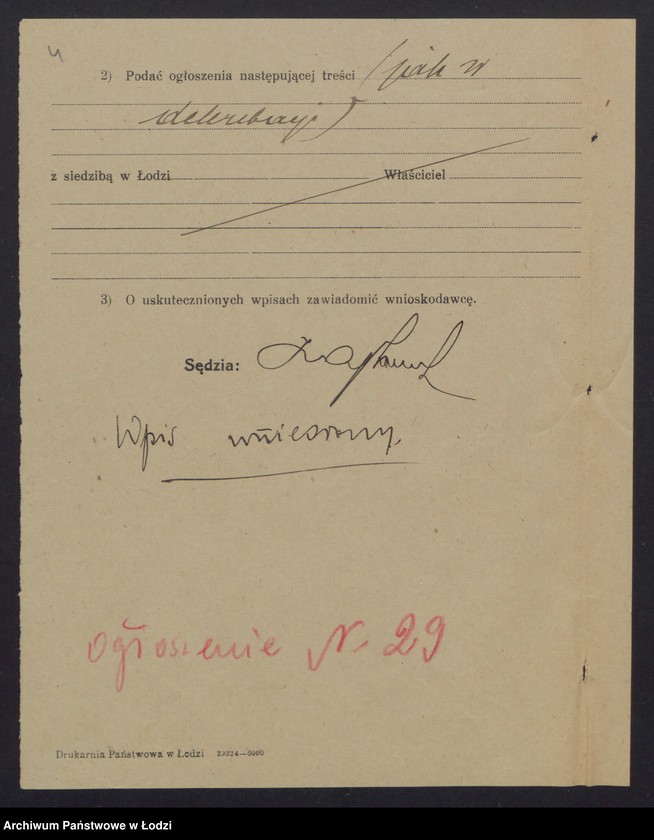 4
2) Podać ogłoszenia następującej treści (jak w
z siedzibą w Łodzi Właściciel
3) O uskutecznionych wpisach zawiadomić wnioskodawcę.
Sędzia:
Wpis wniesiony.
ogłoszenie N. 29
Drukarnia Państwowa w Łodzi
Archiwum Państwowe w Łodzi